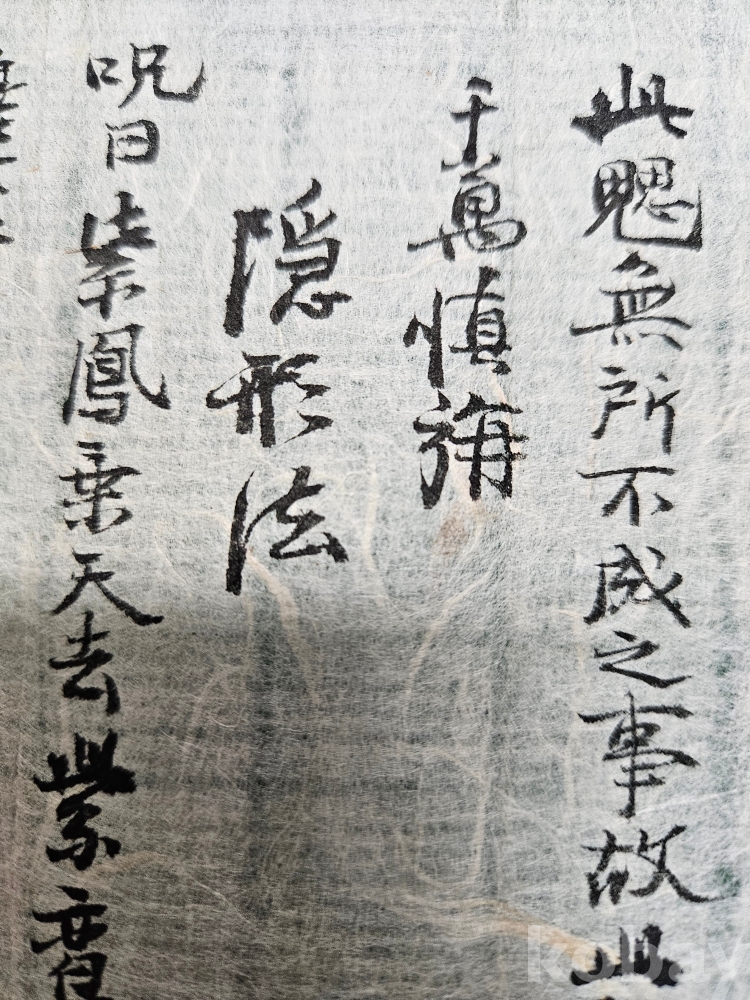 此無所不成之事故此
千萬慎旃
隠形法
呪曰柴鳳乘天去紫
kobay